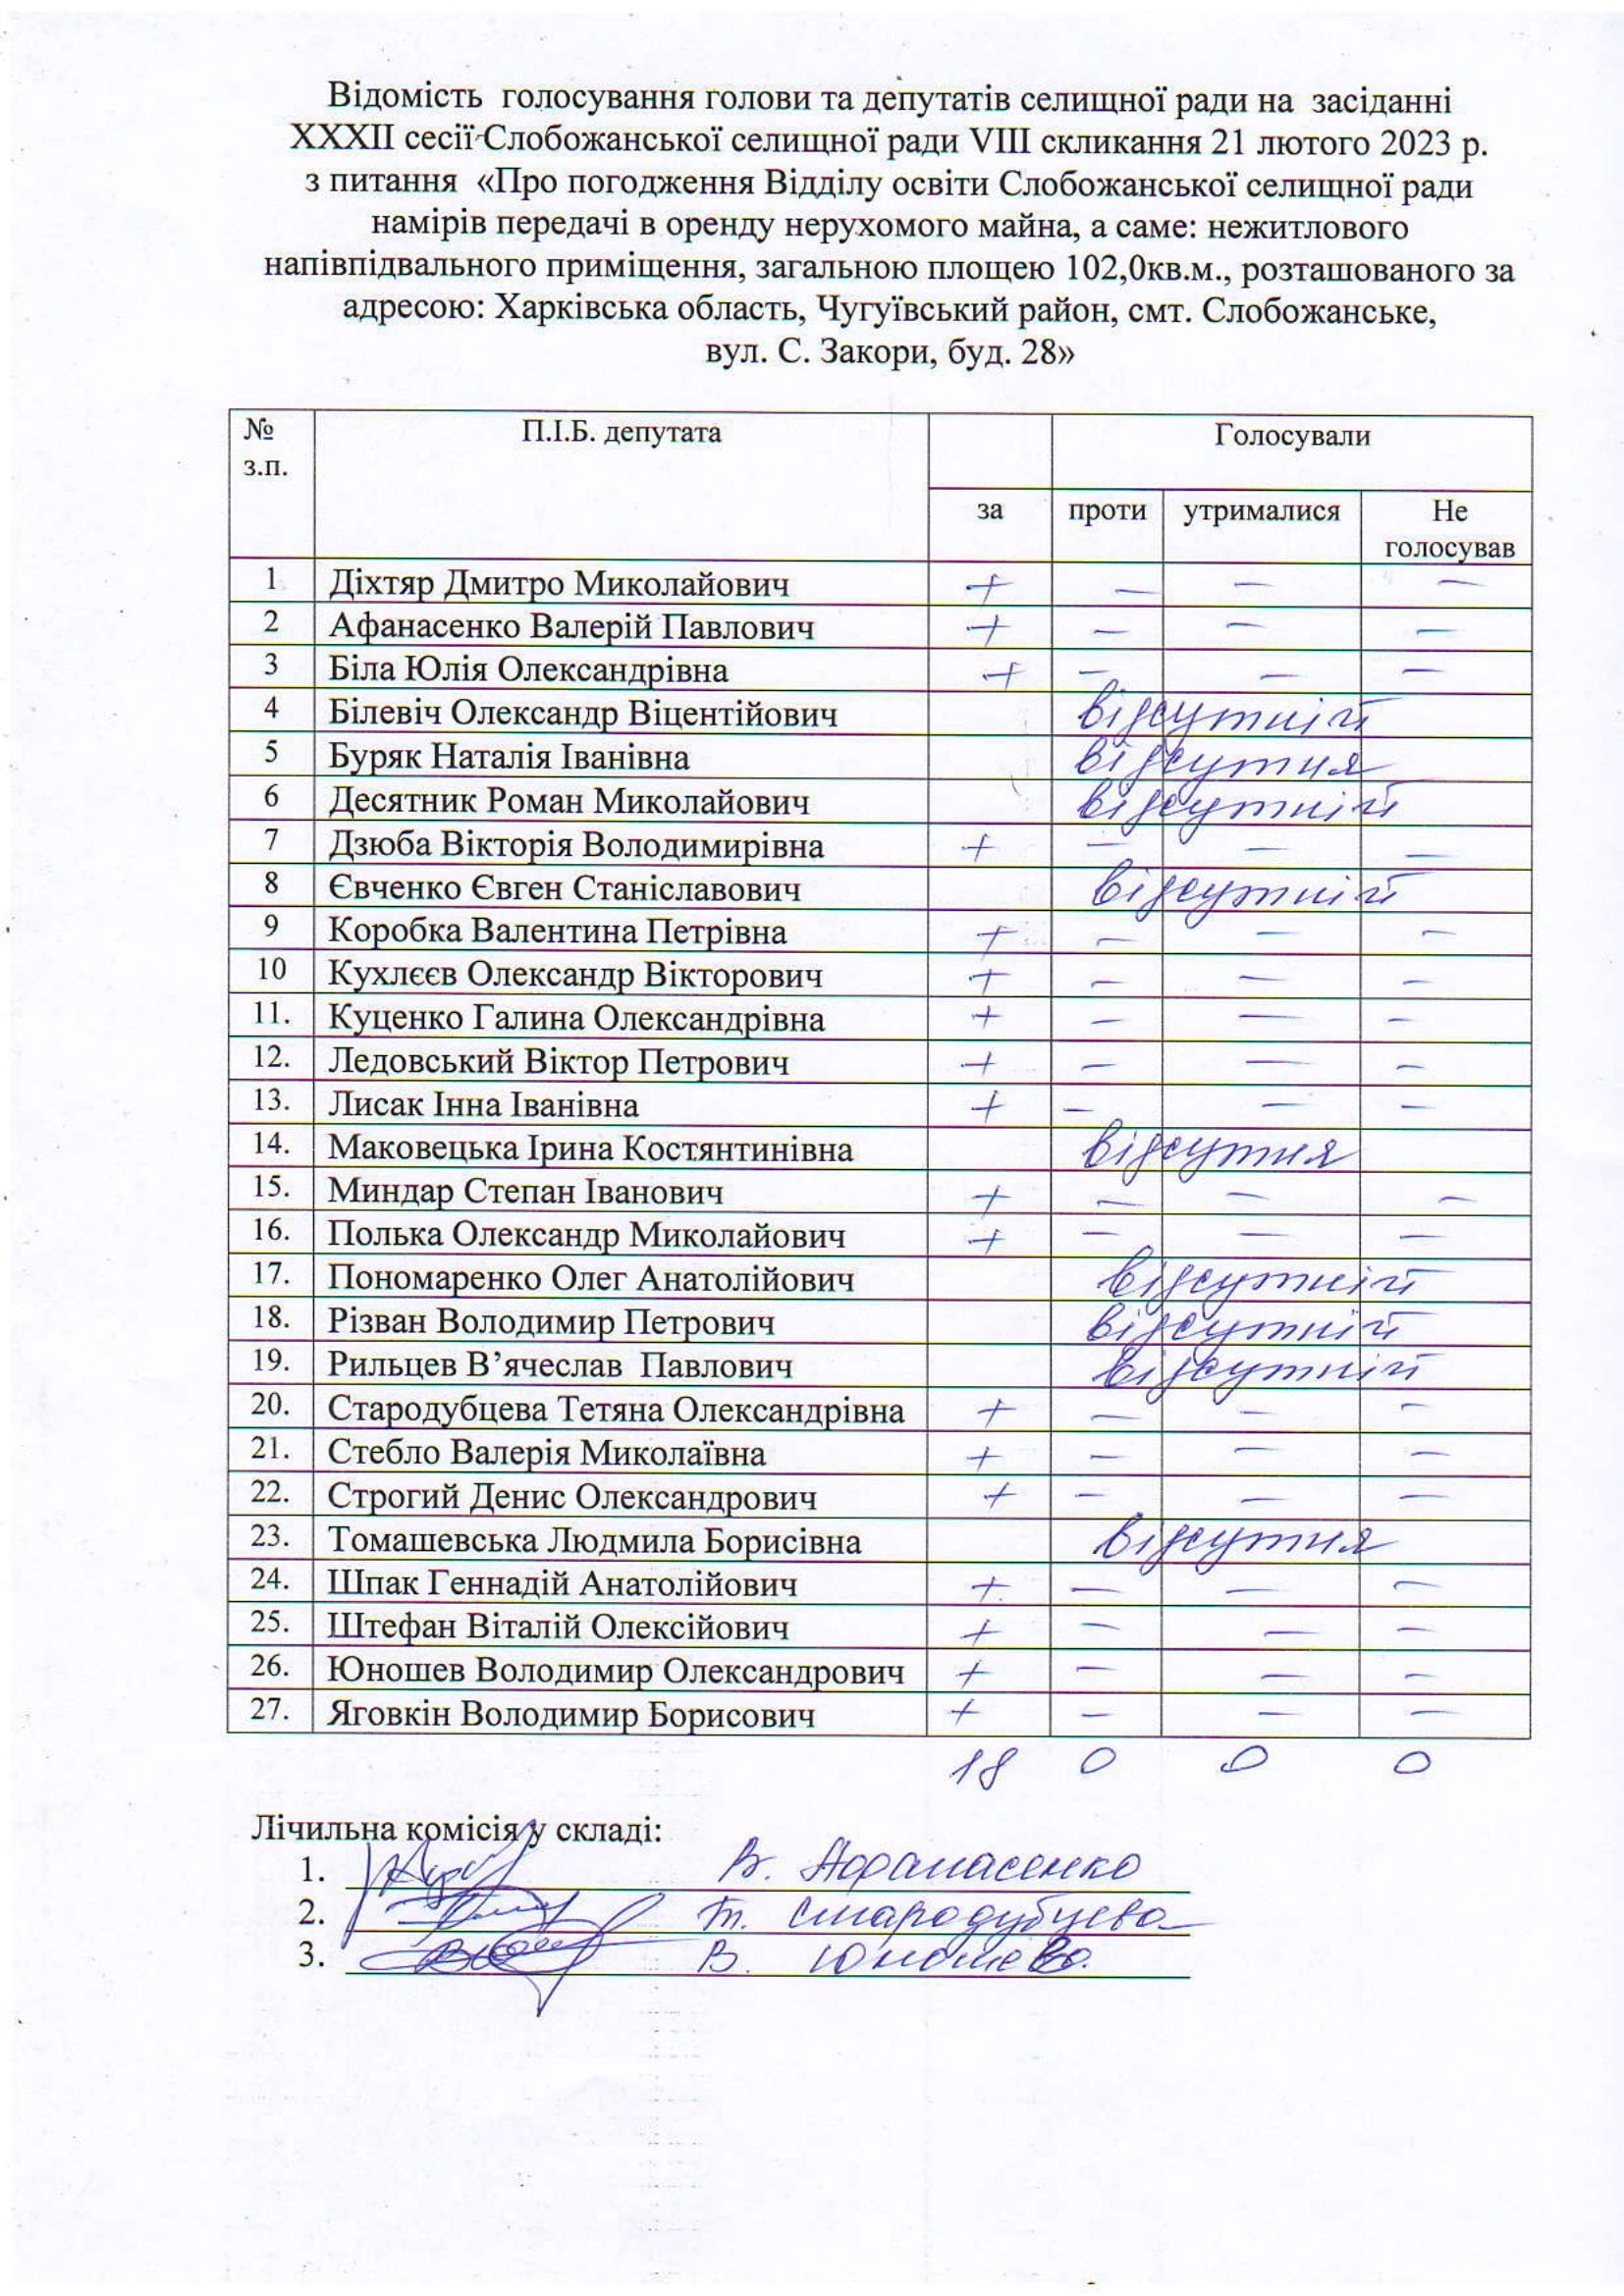 Відомість голосування голови та депутатів селищної ради на засіданні
XXXII сесії Слобожанської селищної ради VIII скликання 21 лютого 2023 р.
з питання «Про погодження Відділу освіти Слобожанської селищної ради
намірів передачі в оренду нерухомого майна, а саме: нежитлового
напівпідвального приміщення, загальною площею 102,0кв.м., розташованого за
адресою: Харківська область, Чугуївський район, смт. Слобожанське,
вул. С. Закори, буд. 28»
№ з.п. П.І.Б. депутата Голосували
за проти утрималися Не голосував
1 Діхтяр Дмитро Миколайович + — — —
2 Афанасенко Валерій Павлович + — — —
3 Біла Юлія Олександрівна + — — —
4 Білевіч Олександр Віцентійович відсутній
5 Буряк Наталія Іванівна відсутня
6 Десятник Роман Миколайович відсутній
7 Дзюба Вікторія Володимирівна + — — —
8 Євченко Євген Станіславович відсутній
9 Коробка Валентина Петрівна + — — —
10 Кухлєєв Олександр Вікторович + — — —
11. Куценко Галина Олександрівна + — — —
12. Ледовський Віктор Петрович + — — —
13. Лисак Інна Іванівна + — — —
14. Маковецька Ірина Костянтинівна відсутня
15. Миндар Степан Іванович + — — —
16. Полька Олександр Миколайович + — — —
17. Пономаренко Олег Анатолійович відсутній
18. Різван Володимир Петрович відсутній
19. Рильцев В’ячеслав Павлович відсутній
20. Стародубцева Тетяна Олександрівна + — — —
21. Стебло Валерія Миколаївна + — — —
22. Строгий Денис Олександрович + — — —
23. Томашевська Людмила Борисівна відсутня
24. Шпак Геннадій Анатолійович + — — —
25. Штефан Віталій Олексійович + — — —
26. Юношев Володимир Олександрович + — — —
27. Яговкін Володимир Борисович + — — —
18 0 0 0
Лічильна комісія у складі:
1. В. Афанасенко
2. Т. Стародубцева
3. В.